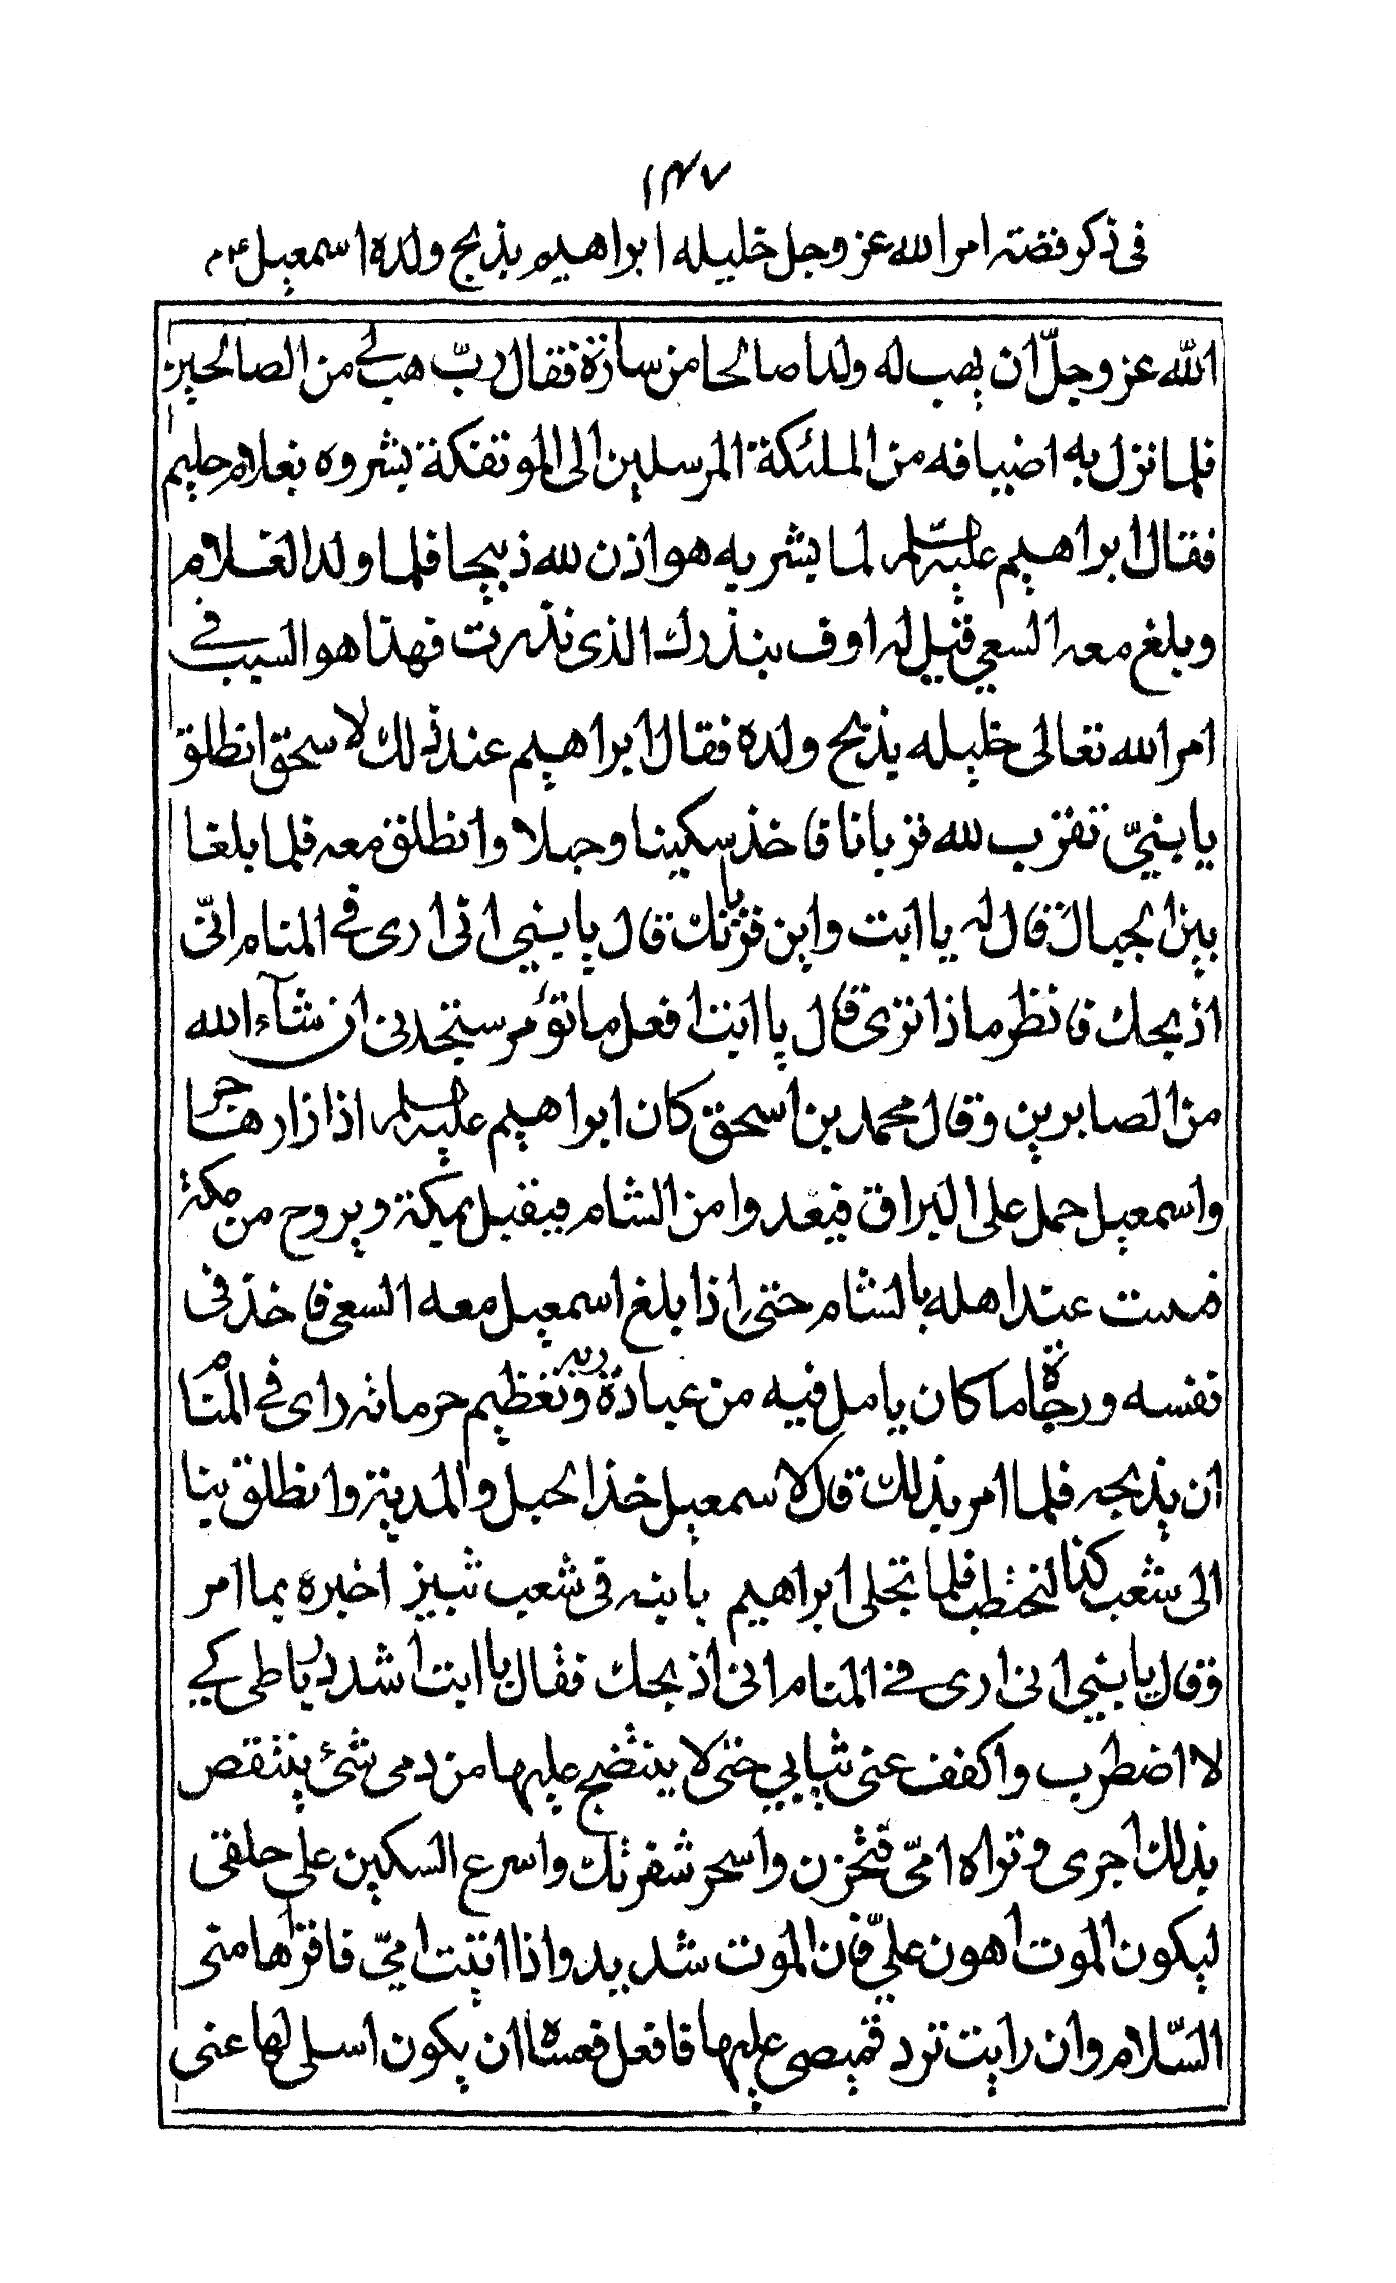 ١٤٧
في ذكر قصته امر الله عز وجل خليله ابراهيم بذبح ولده اسمعيل ع م
الله عز وجلّ ان يهب له ولدا صالحا من سارة فقال ربّ هب لي من الصالحين
فلما نزل به اضيافه من الملئكة المرسلين الى الموتفكة بشروه بغلام حليم
فقال ابراهيم عليه السلم لما بشر به هو اذن لله ذبيحا فلما ولد الغلام
وبلغ معه السعي قيل له اوف بنذرك الذى نذرت فهذا هو السبب في
امر الله تعالى خليله بذبح ولده فقال ابراهيم عند ذلك لاسحق انطلق
يا بنيّ تقرب لله قربانا فاخذ سكينا وحبلا وانطلق معه فلما بلغا
بين الجبال قال له يا ابت واين قربانك قال يا بنيي انى ارى في المنام انّى
اذبحك فانظر ما ذا ترى قال يا ابت افعل ما تؤمر ستجدنى ان شآء الله
من الصابرين وقال محمد بن اسحق كان ابراهيم عليه السلم اذا زار هاجر
واسمعيل حمل على البراق فيغدوا من الشام فيقيل بمكة ويروح من مكة
فيبيت عند اهله بالشام حتى اذا بلغ اسمعيل معه السعى فاخذ فى
نفسه ورجاه ما كان يامل فيه من عبادة ربه وتعظيم حرماته راى في المنام
ان يذبحه فلما امر بذلك قال لاسمعيل خذ الحبل والمدية وانطلق بنا
الى شعب كذا لنحتطب فلما تخلى ابراهيم بابنه فى شعب ثبيز اخبره بما امر
وقال يا بنيي انى ارى في المنام انى اذبحك فقال يا ابت اشدد رباطى كي
لا اضطرب واكفف عنى ثيابي حتى لا ينتضح عليها من دمى شئ ينتقص
بذلك اجرى وتراه امّى فتحزن واسحر شفرتك واسرع السكين على حلقى
ليكون الموت اهون عليّ فان الموت شديد واذا اتيت اميّ فاقراها منى
السّلام وان رايت ترد قميصى عليها فافعل فعساه ان يكون اسلى لها عنى